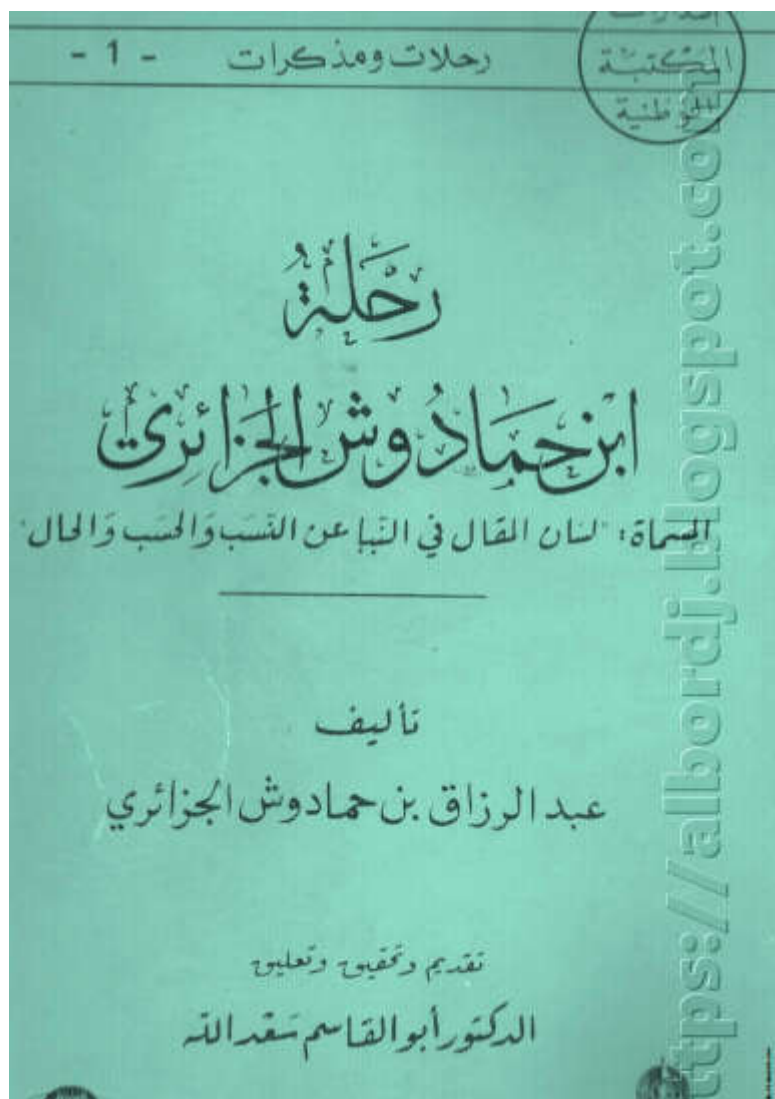 إصدارات
المكتبة
الوطنية
رحلات ومذكرات - 1 -
رحلة
ابن حمادوش الجزائري
المسماة: "لسان المقال في النبإ عن النسب والحسب والحال"
تأليف
عبد الرزاق بن حمادوش الجزائري
تقديم وتحقيق وتعليق
الدكتور أبو القاسم سعد الله
ttps://albordj.blogspot.com